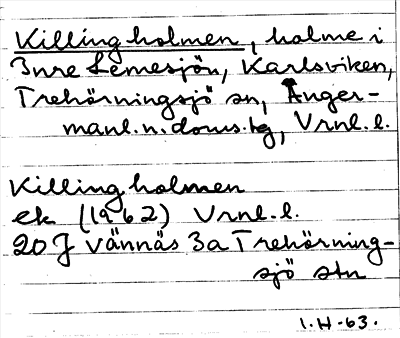 Killingholmen, holme i
Inre Lemesjön, Karlsviken,
Trehörningsjö sn, Ånger-
manl. n. doms. hg, Vrnl. l.
Killingholmen
ek (1962) Vrnl. l.
20 J Vännäs 3a Trehörning-
sjö stn
I. H -63.